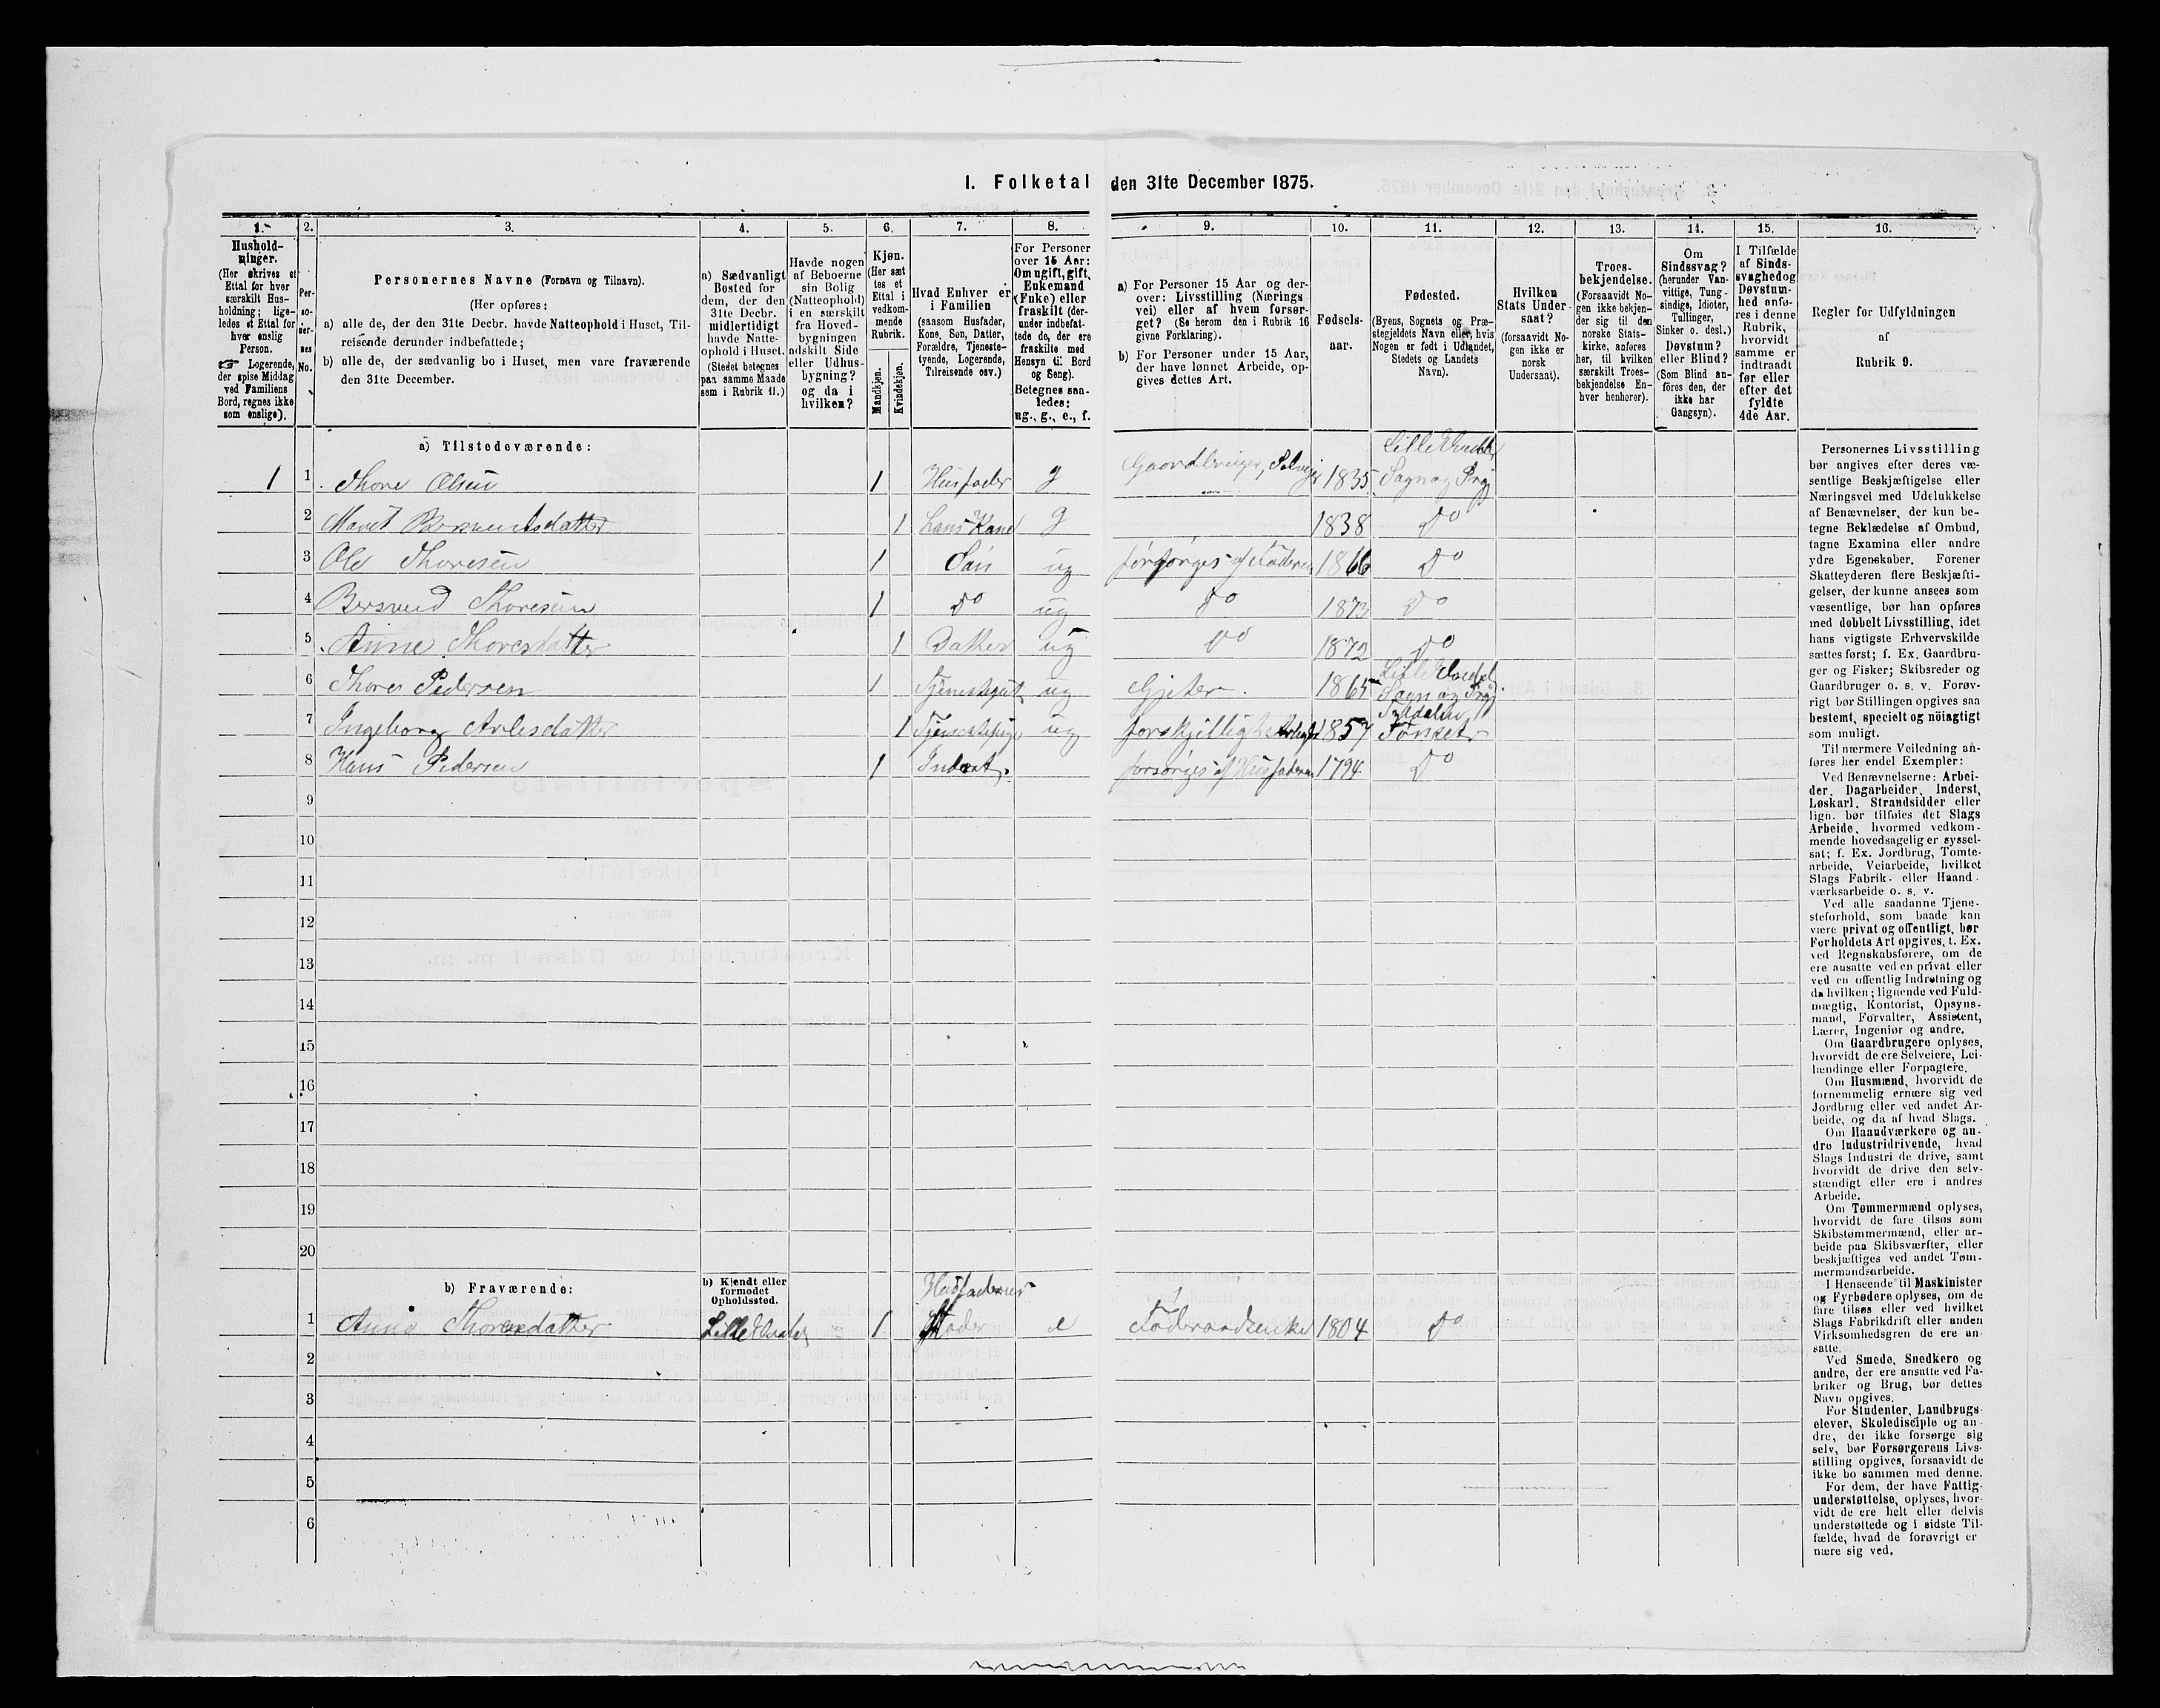 I. Folketal den 31te December 1875.
1. 2. 3. 4. 5. 6. 7. 8. 9. 10. 11. 12. 13. 14. 15. 16.
Hushold-
ninger.
(Her skrives et
Ettal for hver
særskilt Hus-
holdning; lige-
ledes et Ettal for
hver enslig
Person.
☞ Logerende,
der spise Middag
ved Familiens
Bord, regnes ikke
som enslige).
Per-
so-
ner-
nes
No.
Personernes Navne (Fornavn og Tilnavn).
(Her opføres:
a) alle de, der den 31te Decbr. havde Natteophold i Huset, Til-
reisende derunder indbefattede;
b) alle de, der sædvanlig bo i Huset, men vare fraværende
den 31te December.
a) Sædvanligt
Bosted for
dem, der den
31te Decbr.
midlertidigt
havde Natte-
ophold i Huset.
(Stedet betegnes
paa samme Maade
som i Rubrik 11.)
Havde nogen
af Beboerne
sin Bolig
(Natteophold)
i en særskilt
fra Hoved-
bygningen
adskilt Side
eller Udhus-
bygning?
og da i
hvilken?
Kjøn.
(Her sæt
tes et
Ettal i
vedkom-
mende
Rubrik.
Mandkjøn.
Kvindekjøn.
Hvad Enhver er
i Familien
(saasom Husfader,
Kone, Søn, Datter,
Forældre, Tjeneste-
tyende, Logerende,
Tilreisende osv.)
For Personer
over 15 Aar:
Om ugift, gift,
Enkemand
(Enke) eller
fraskilt (der-
under indbefat-
tede de, der ere
fraskilte med
Hensyn til Bord
og Seng).
Betegnes saa-
ledes:
ug., g., e., f.
a) For Personer 15 Aar og der-
over: Livsstilling (Nærings
vei) eller af hvem forsør-
get? (Se herom den i Rubrik 16
givne Forklaring).
b) For Personer under 15 Aar,
der have lønnet Arbeide, op-
gives dettes Art.
Fødsels-
aar.
Fødested.
(Byens, Sognets og Præ-
stegjeldets Navn eller, hvis
Nogen er født i Udlandet,
Stedets og Landets
Navn).
Hvilken
Stats Under-
saat?
(forsaavidt No-
gen ikke er
norsk
Undersaat).
Troes-
bekjendelse.
(Forsaavidt No-
gen ikke bekjen-
der sig til den
norske Stats-
kirke, anføres
her, til hvilken
særskilt Troes-
bekjendelse En-
hver henhører).
Om
Sindssvag?
(herunder Van-
vittige, Tung-
sindige, Idioter,
Tullinger,
Sinker o. desl.)
Døvstum?
eller Blind?
(Som Blind an-
føres den, der
ikke har
Gangsyn).
I Tilfælde
af Sinds-
svaghed og
Døvstum-
hed anfø-
res i denne
Rubrik,
hvorvidt
samme er
indtraadt
før eller
efter det
fyldte
4de Aar.
Regler for Udfyldningen
af
Rubrik 9.
a) Tilstedeværende:
1 1 Thore Olsen 1 Husfader g Gaardbruger, Selvejer 1835 Lille Elvedal Sogn og Prgj
2 Marit Bersvendsdatter 1 hans Kone g 1838 Do
3 Ole Thoresen 1 Søn ug forsørges af Faderen 1866 Do
4 Bersvend Thoresen 1 Do ug Do 1873 Do
5 Anne Thoresdatter 1 Datter ug Do 1872 Do
6 Thore Pedersen 1 Tjenestegut ug Gjeter. 1865 Lille Elvedal Sogn og Prgj.
7 Ingeborg Arlesdatter 1 Tjenestepige ug forskjelligt Arbejde 1857 Tyldalen Tønset
8 Hans Pedersen 1 Inderst. forsørges af Husfaderen 1794 Do
9
10
11
12
13
14
15
16
17
18
19
20
b) Fraværende:
b) Kjendt eller
formodet
Opholdssted.
1 Anne Thoresdatter Lille Elvedal 1 Husfaderens Moder e Føderaadsenke 1804 Do
2
3
4
5
6
Personernes Livsstilling
bør angives efter deres væ-
sentlige Beskjæftigelse eller
Næringsvei med Udelukkelse
af Benævnelser, der kun be-
tegne Beklædelse af Ombud,
tagne Examina eller andre
ydre Egenskaber. Forener
Skatteyderen flere Beskjæfti-
gelser, der kunne ansees som
væsentlige, bør han opføres
med dobbelt Livsstilling, idet
hans vigtigste Erhvervskilde
sættes først; f. Ex. Gaardbru-
ger og Fisker; Skibsreder og
Gaardbruger o. s. v. Forøv-
rigt bør Stillingen opgives saa
bestemt, specielt og nöiagtigt
som muligt.
Til nærmere Veiledning an-
føres her endel Exempler:
Ved Benævnelserne: Arbei-
der, Dagarbeider, Inderst,
Løskarl, Strandsidder eller
lign. bør tilføies det Slags
Arbeide, hvormed vedkom-
mende hovedsagelig er syssel-
sat; f. Ex. Jordbrug, Tomte-
arbeide, Veiarbeide, hvilket
Slags Fabrik- eller Haand-
værksarbeide o. s. v.
Ved alle saadanne Tjene-
steforhold, som baade kan
være privat og offentligt, bør
Forholdets Art opgives, t. Ex.
ved Regnskabsførere, om de
ere ansatte ved en privat eller
ved en offentlig Indretning og
da hvilken; lignende ved Fuld-
mægtig, Kontorist, Opsyns-
mand, Forvalter, Assistent,
Lærer, Ingeniør og andre.
Om Gaardbrugere oplyses,
hvorvidt de ere Selveiere, Lei-
lændinge eller Forpagtere.
Om Husmænd, hvorvidt de
fornemmelig ernære sig ved
Jordbrug eller ved andet Ar-
beide, og da af hvad Slags.
Om Haandværkere og an-
dre Industridrivende, hvad
Slags Industri de drive, samt
hvorvidt de drive den selv-
stændigt eller ere i andres
Arbeide.
Om Tømmermænd oplyses,
hvorvidt de fare tilsøs som
Skibstømmermænd, eller ar-
beide paa Skibsværfter, eller
beskjæftiges ved andet Tøm-
mermandsarbeide.
I Henseende til Maskinister
og Fyrbødere oplyses, om de
fare tilsøs eller ved hvilket
Slags Fabrikdrift eller anden
Virksomhedsgren de ere an-
satte.
Ved Smede, Snedkere og
andre, der ere ansatte ved Fa-
briker og Brug, bør dettes
Navn opgives.
For Studenter, Landbrugs-
elever, Skoledisciple og an-
dre, der ikke forsørge sig
selv, bør Forsørgerens Livs-
stilling opgives, forsaavidt de
ikke bo sammen med denne.
For dem, der have Fattig-
understøttelse, oplyses, hvor-
vidt de ere helt eller delvis
understøttede og i sidste Til-
fælde, hvad de forøvrigt er-
nære sig ved.